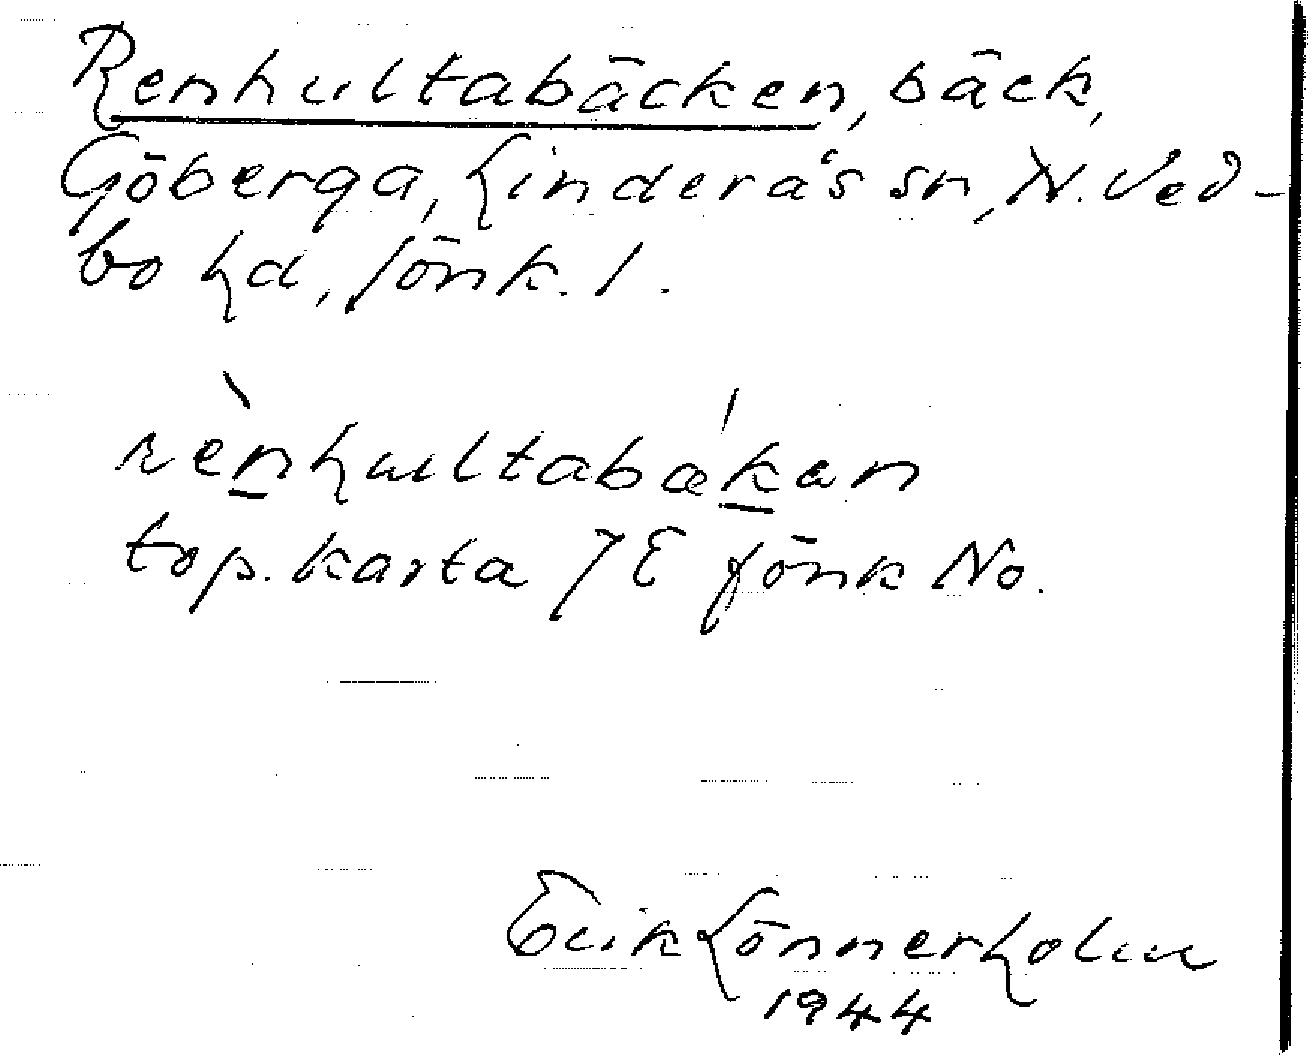 Renhultabäcken, bäck,
Göberga, Linderås sn, N. Ved-
bo hd, Jönk. l.
rènhultabækan
top. karta 7E Jönk No.
Erik Lönnerholm
1944